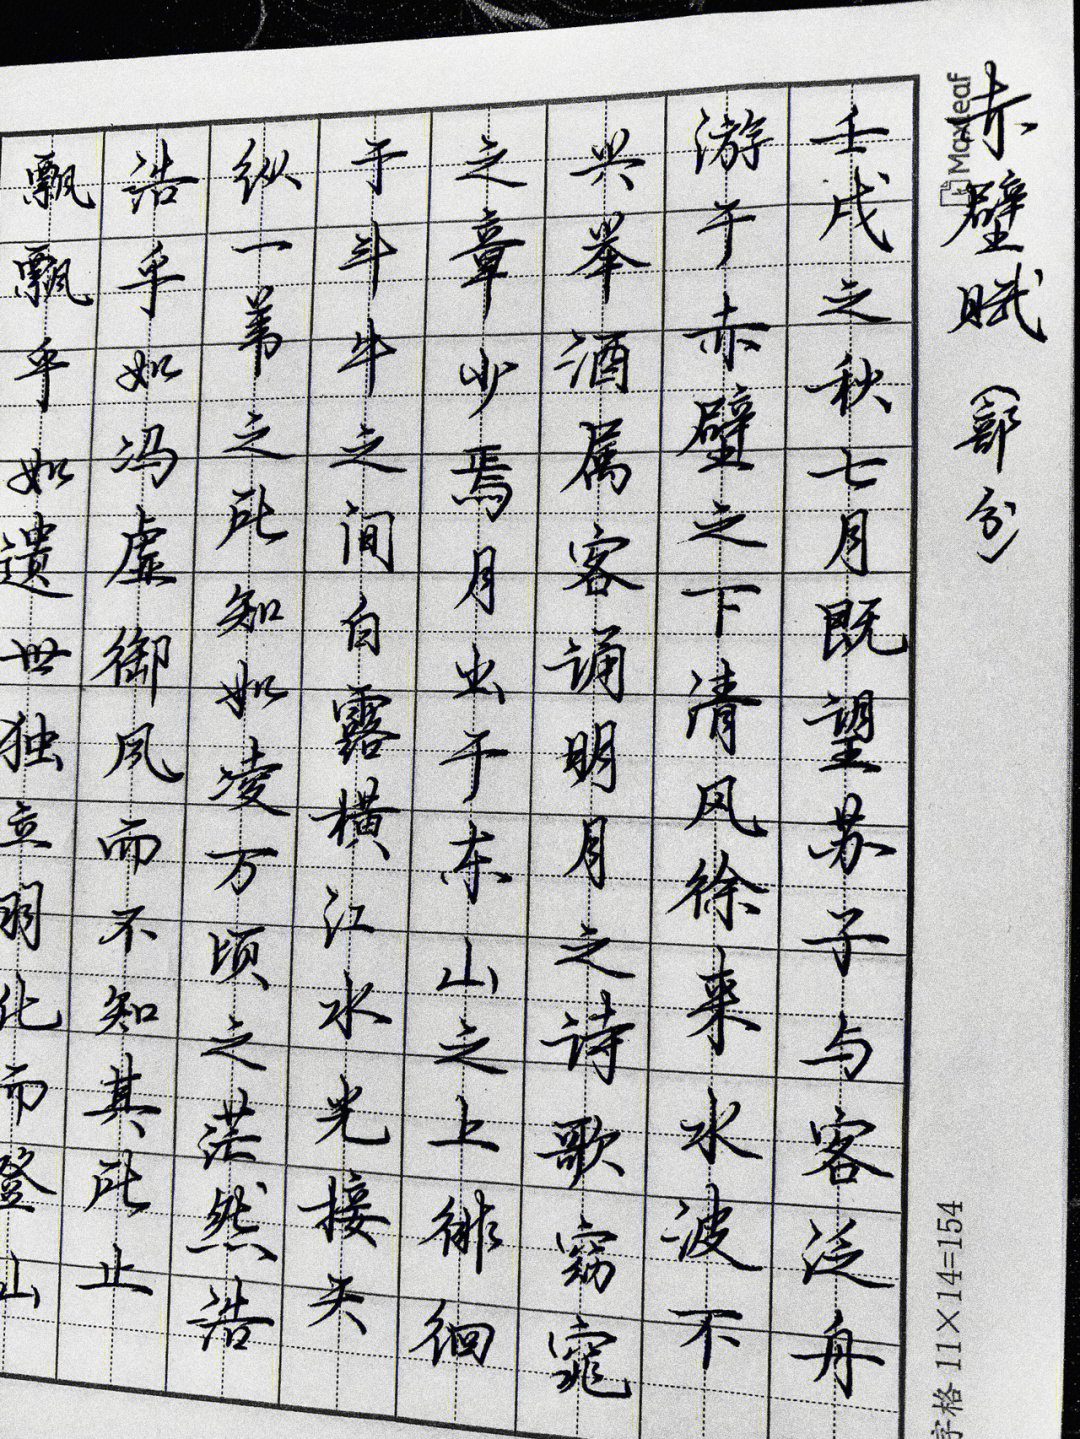 赤壁赋（部分）
Maxleaf
壬戌之秋七月既望苏子与客泛舟
游于赤壁之下清风徐来水波不
兴举酒属客诵明月之诗歌窈窕
之章少焉月出于东山之上徘徊
于斗牛之间白露横江水光接天
纵一苇之所知如凌万顷之茫然浩
浩乎如冯虚御风而不知其所止
飘飘乎如遗世独立羽化而登山
字格 11×14=154